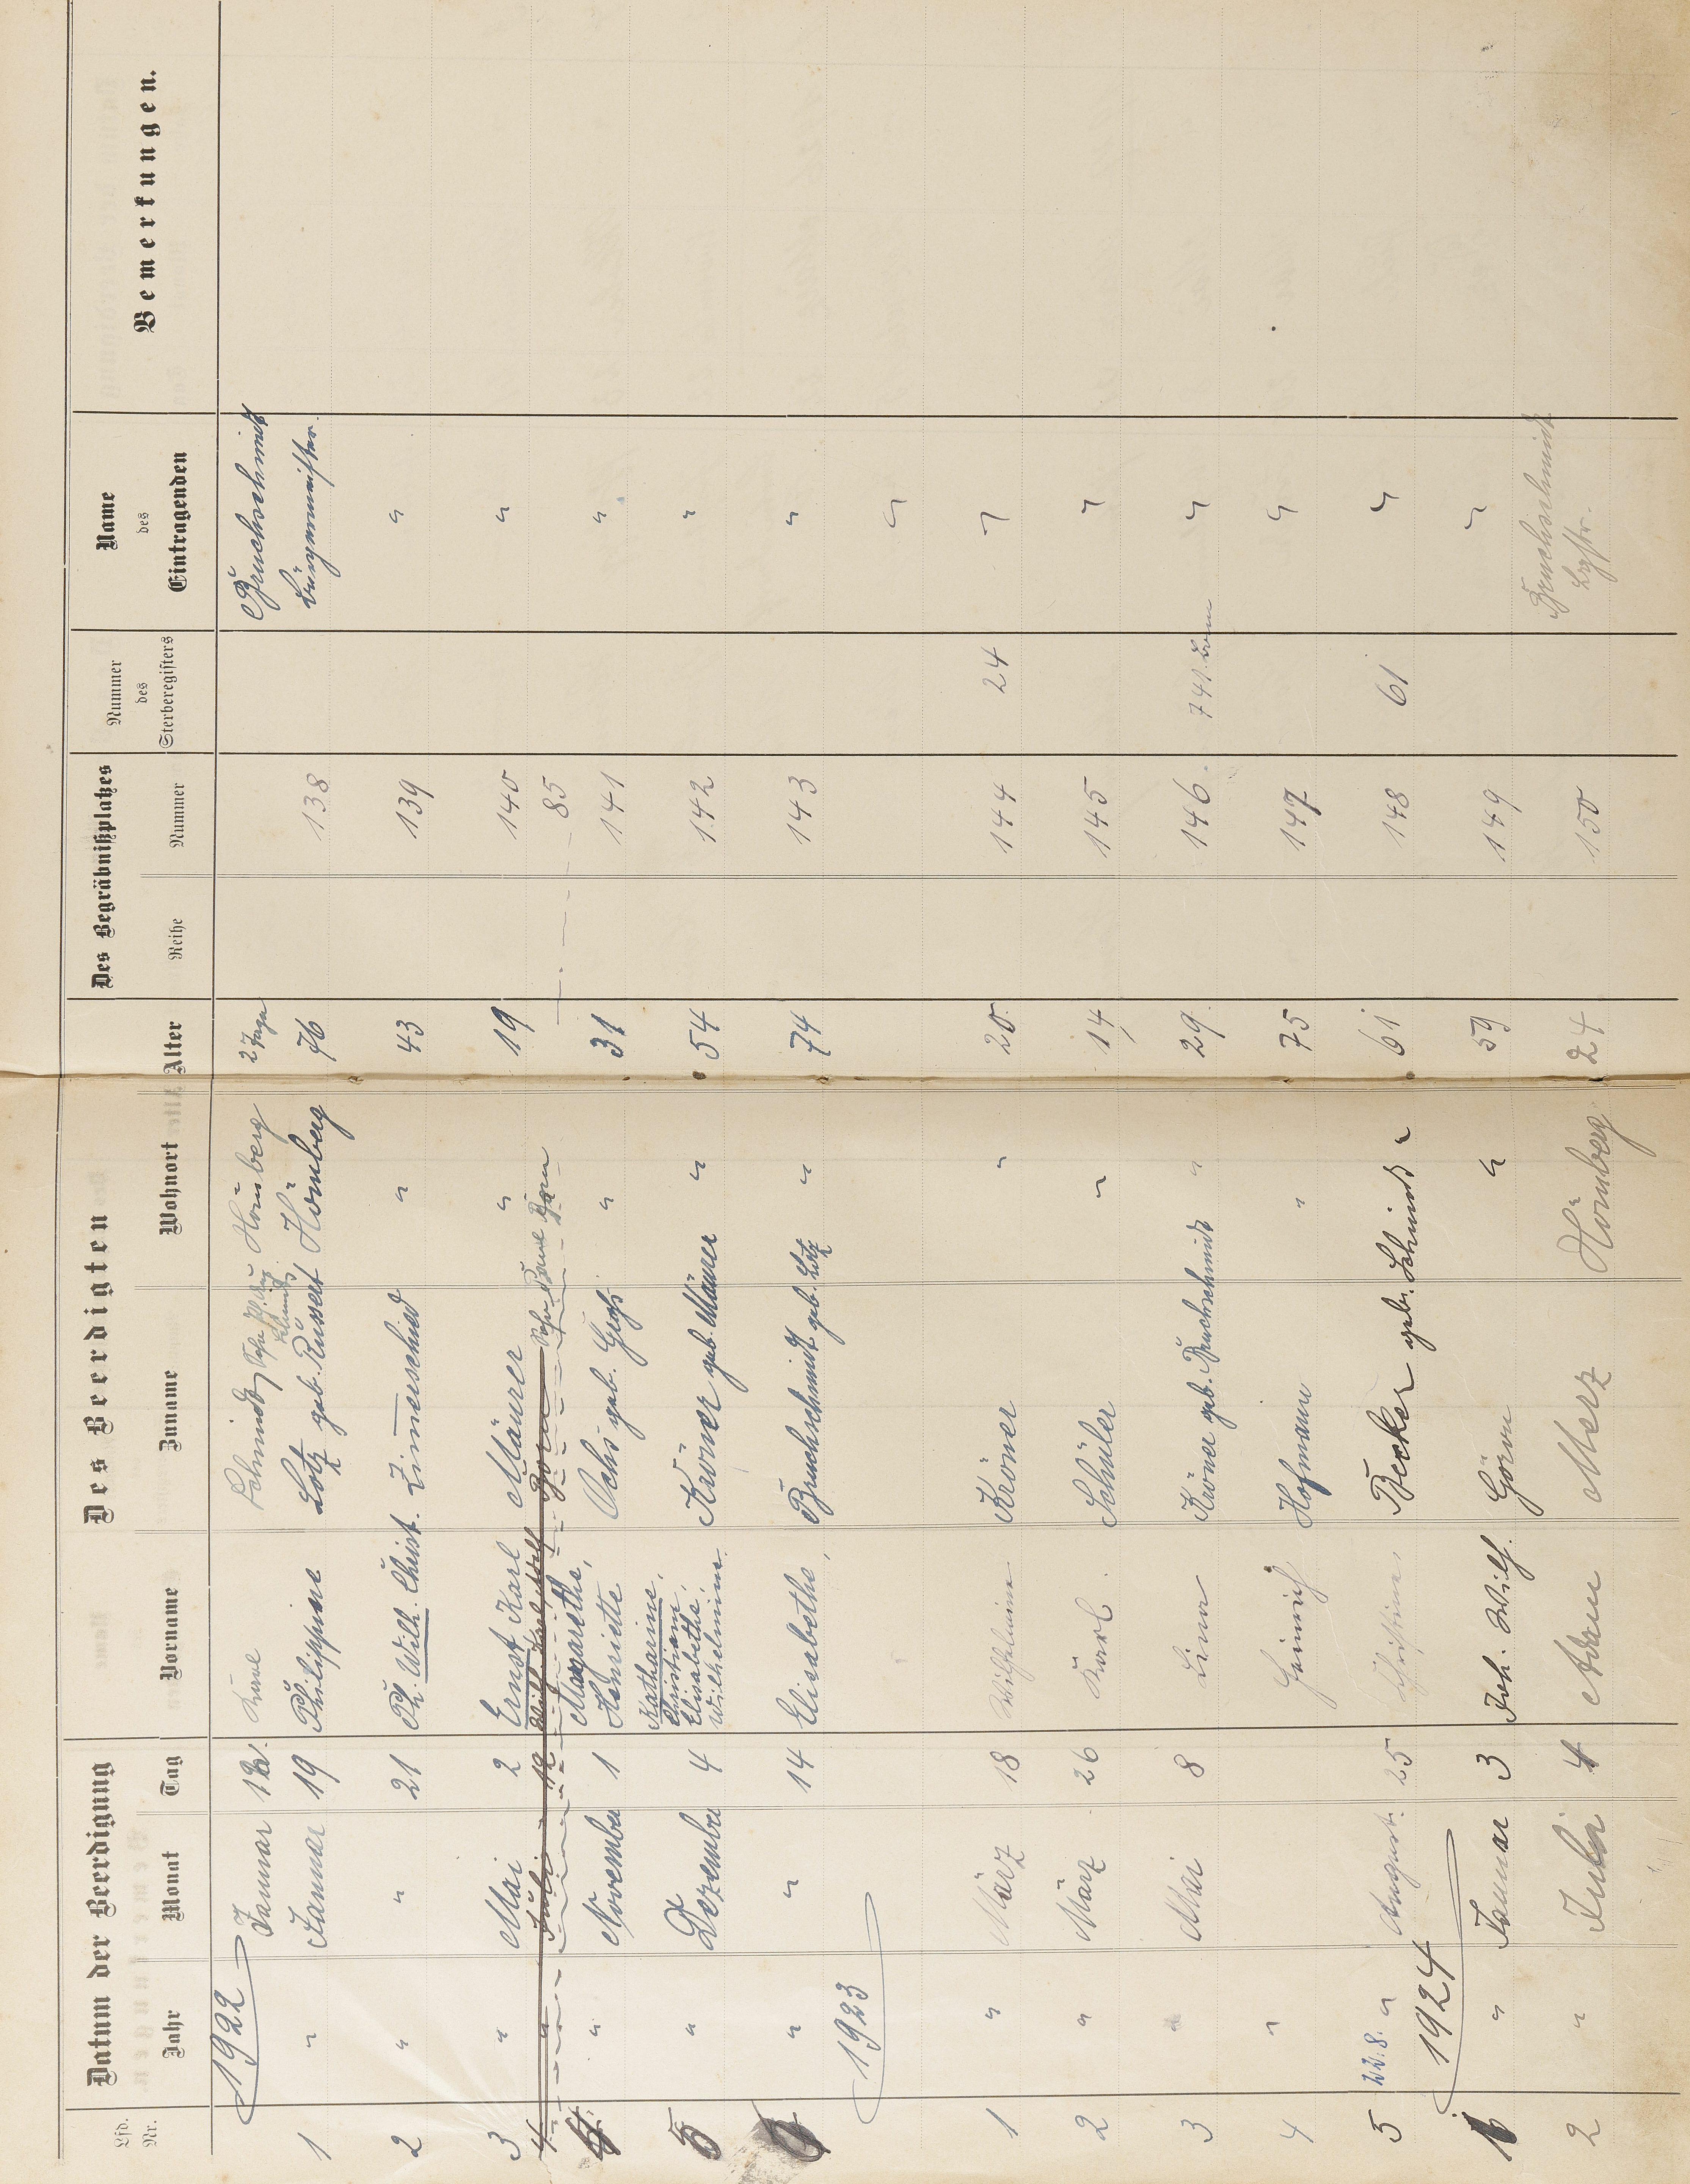 Lfd. Nr.
Datum der Beerdigung
Jahr Monat Tag
Des Beerdigten
Vorname Zuname Wohnort
Alter
Des Begräbnißplatzes
Reihe Nummer
Nummer des Sterberegisters
Name des Eintragenden
Bemerkungen.
1922
Januar Karl Schmidt Hömberg 2 Tage Bruchschmidt
1 " Januar 19 Philippine Lotz geb. Russert Hömberg 76 138 Bürgermeister
2 " " 21 Ph. Wilh. Christ. Zimerschied " 43 139 "
3 " Mai 2 Ernst Karl Mäurer " 19 140 "
4 " Juli 85
4 " November 1 Margarethe, Henriette Ochs geb. " 31 141 "
5 " Dezember 4 Katharine, Christiane, Elisabethe, Wilhelmine Kröner geb. Mäurer " 54 142 "
6 " " 14 Elisabethe Bruchschmidt geb. Lotz " 74 143 "
1923 "
1 " März 18 Wilhelmine Kröner " 20. 144 24 "
2 " März 26 Karl. Schüler " 14 145 "
3 " Mai 8 Lina Kröner geb. Bruchschmidt " 29. 146. 741. "
4 " Heinrich Hofmann " 75 147 "
5 22.8. " August. 25 Christine Becker geb. Schmidt " 61 148 61 "
1924
1 " Januar 3 Joh. Wilh. Görun " 59 149 "
2 " Juli 4 Adam Merz Hömberg 24 150 Bruchschmidt
Bgstr.